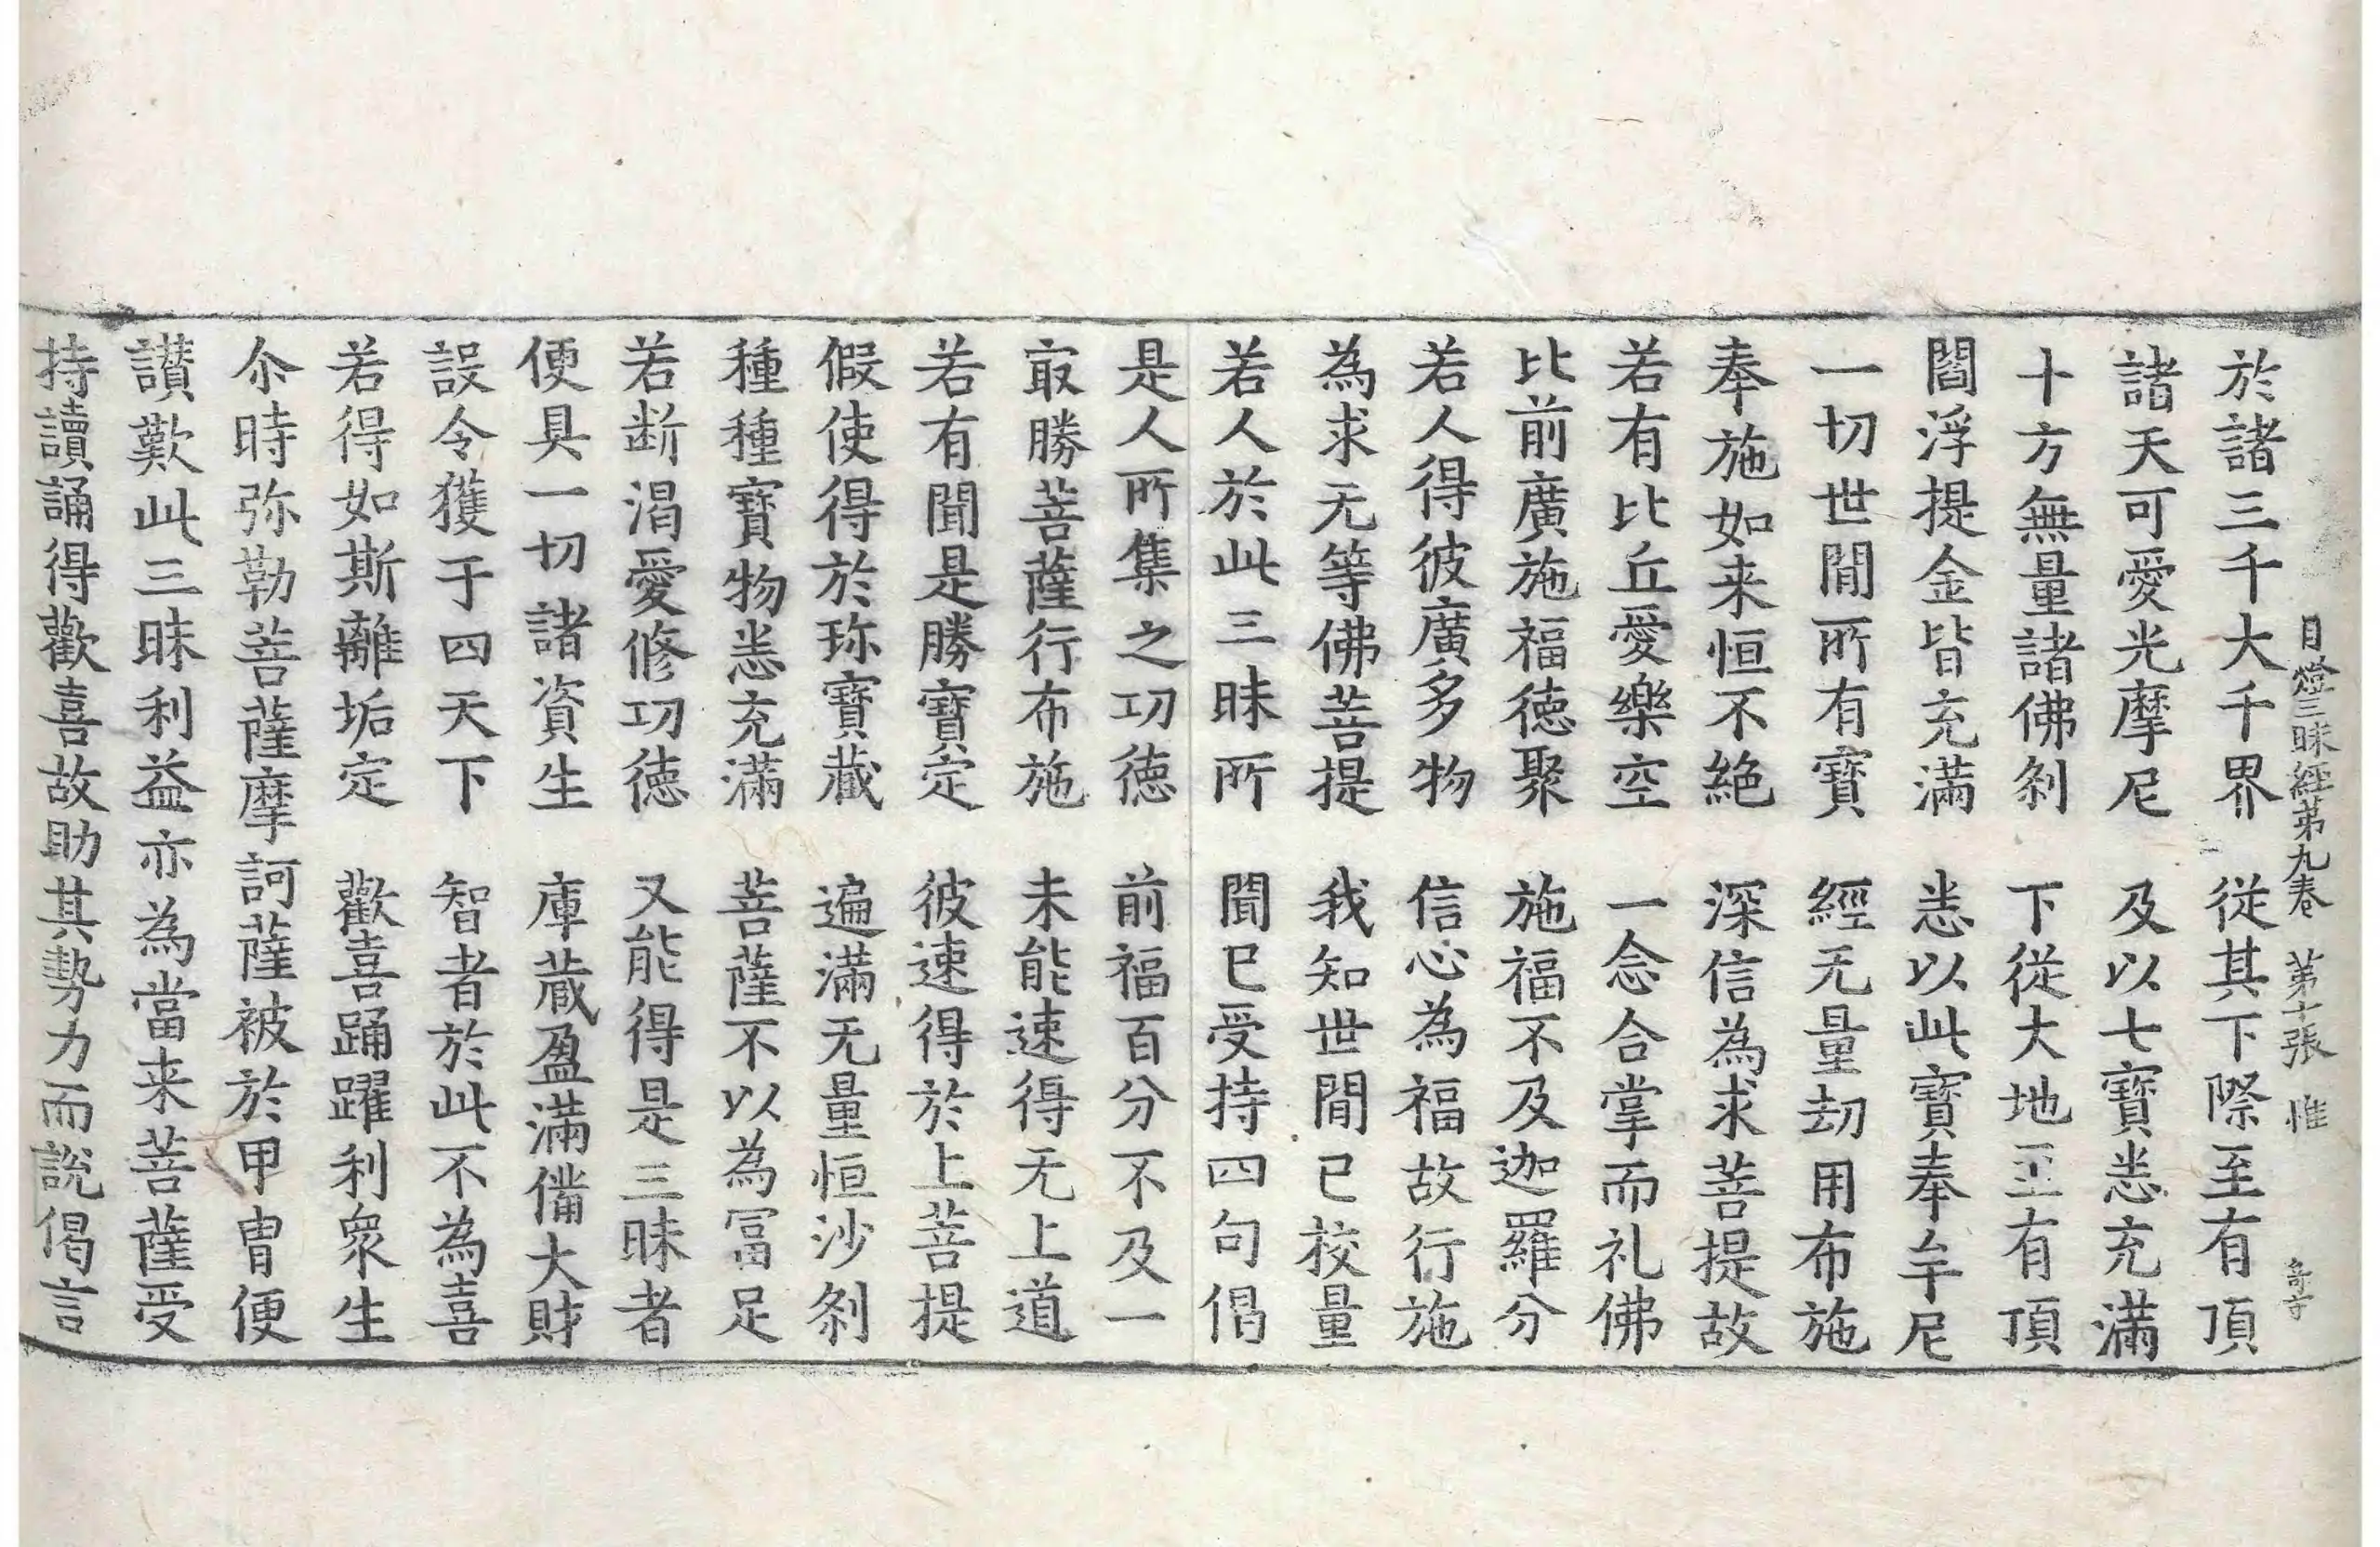 月燈三昧經第九卷 第十張 惟 奇寸
於諸三千大千界 從其下際至有頂
諸天可愛光摩尼 及以七寶悉充滿
十方無量諸佛刹 下從大地至有頂
閻浮提金皆充滿 悉以此寶奉牟尼
一切世間所有寶 經无量劫用布施
奉施如来恒不絶 深信為求菩提故
若有比丘愛樂空 一念合掌而礼佛
比前廣施福徳聚 施福不及迦羅分
若人得彼廣多物 信心為福故行施
為求无等佛菩提 我知世間已校量
若人於此三昧所 聞已受持四句偈
是人所集之功徳 前福百分不及一
㝡勝菩薩行布施 未能速得无上道
若有聞是勝寶定 彼速得於上菩提
假使得於珎寶藏 遍滿无量恒沙刹
種種寶物悉充滿 菩薩不以為冨足
若断渴愛修功徳 又能得是三昧者
便具一切諸資生 庫藏盈滿俻大財
設令獲于四天下 智者於此不為喜
若得如斯離垢定 歡喜踊躍利衆生
尒時弥勒菩薩摩訶薩被於甲胄便
讃歎此三昧利益亦為當来菩薩受
持讀誦得歡喜故助其勢力而說偈言